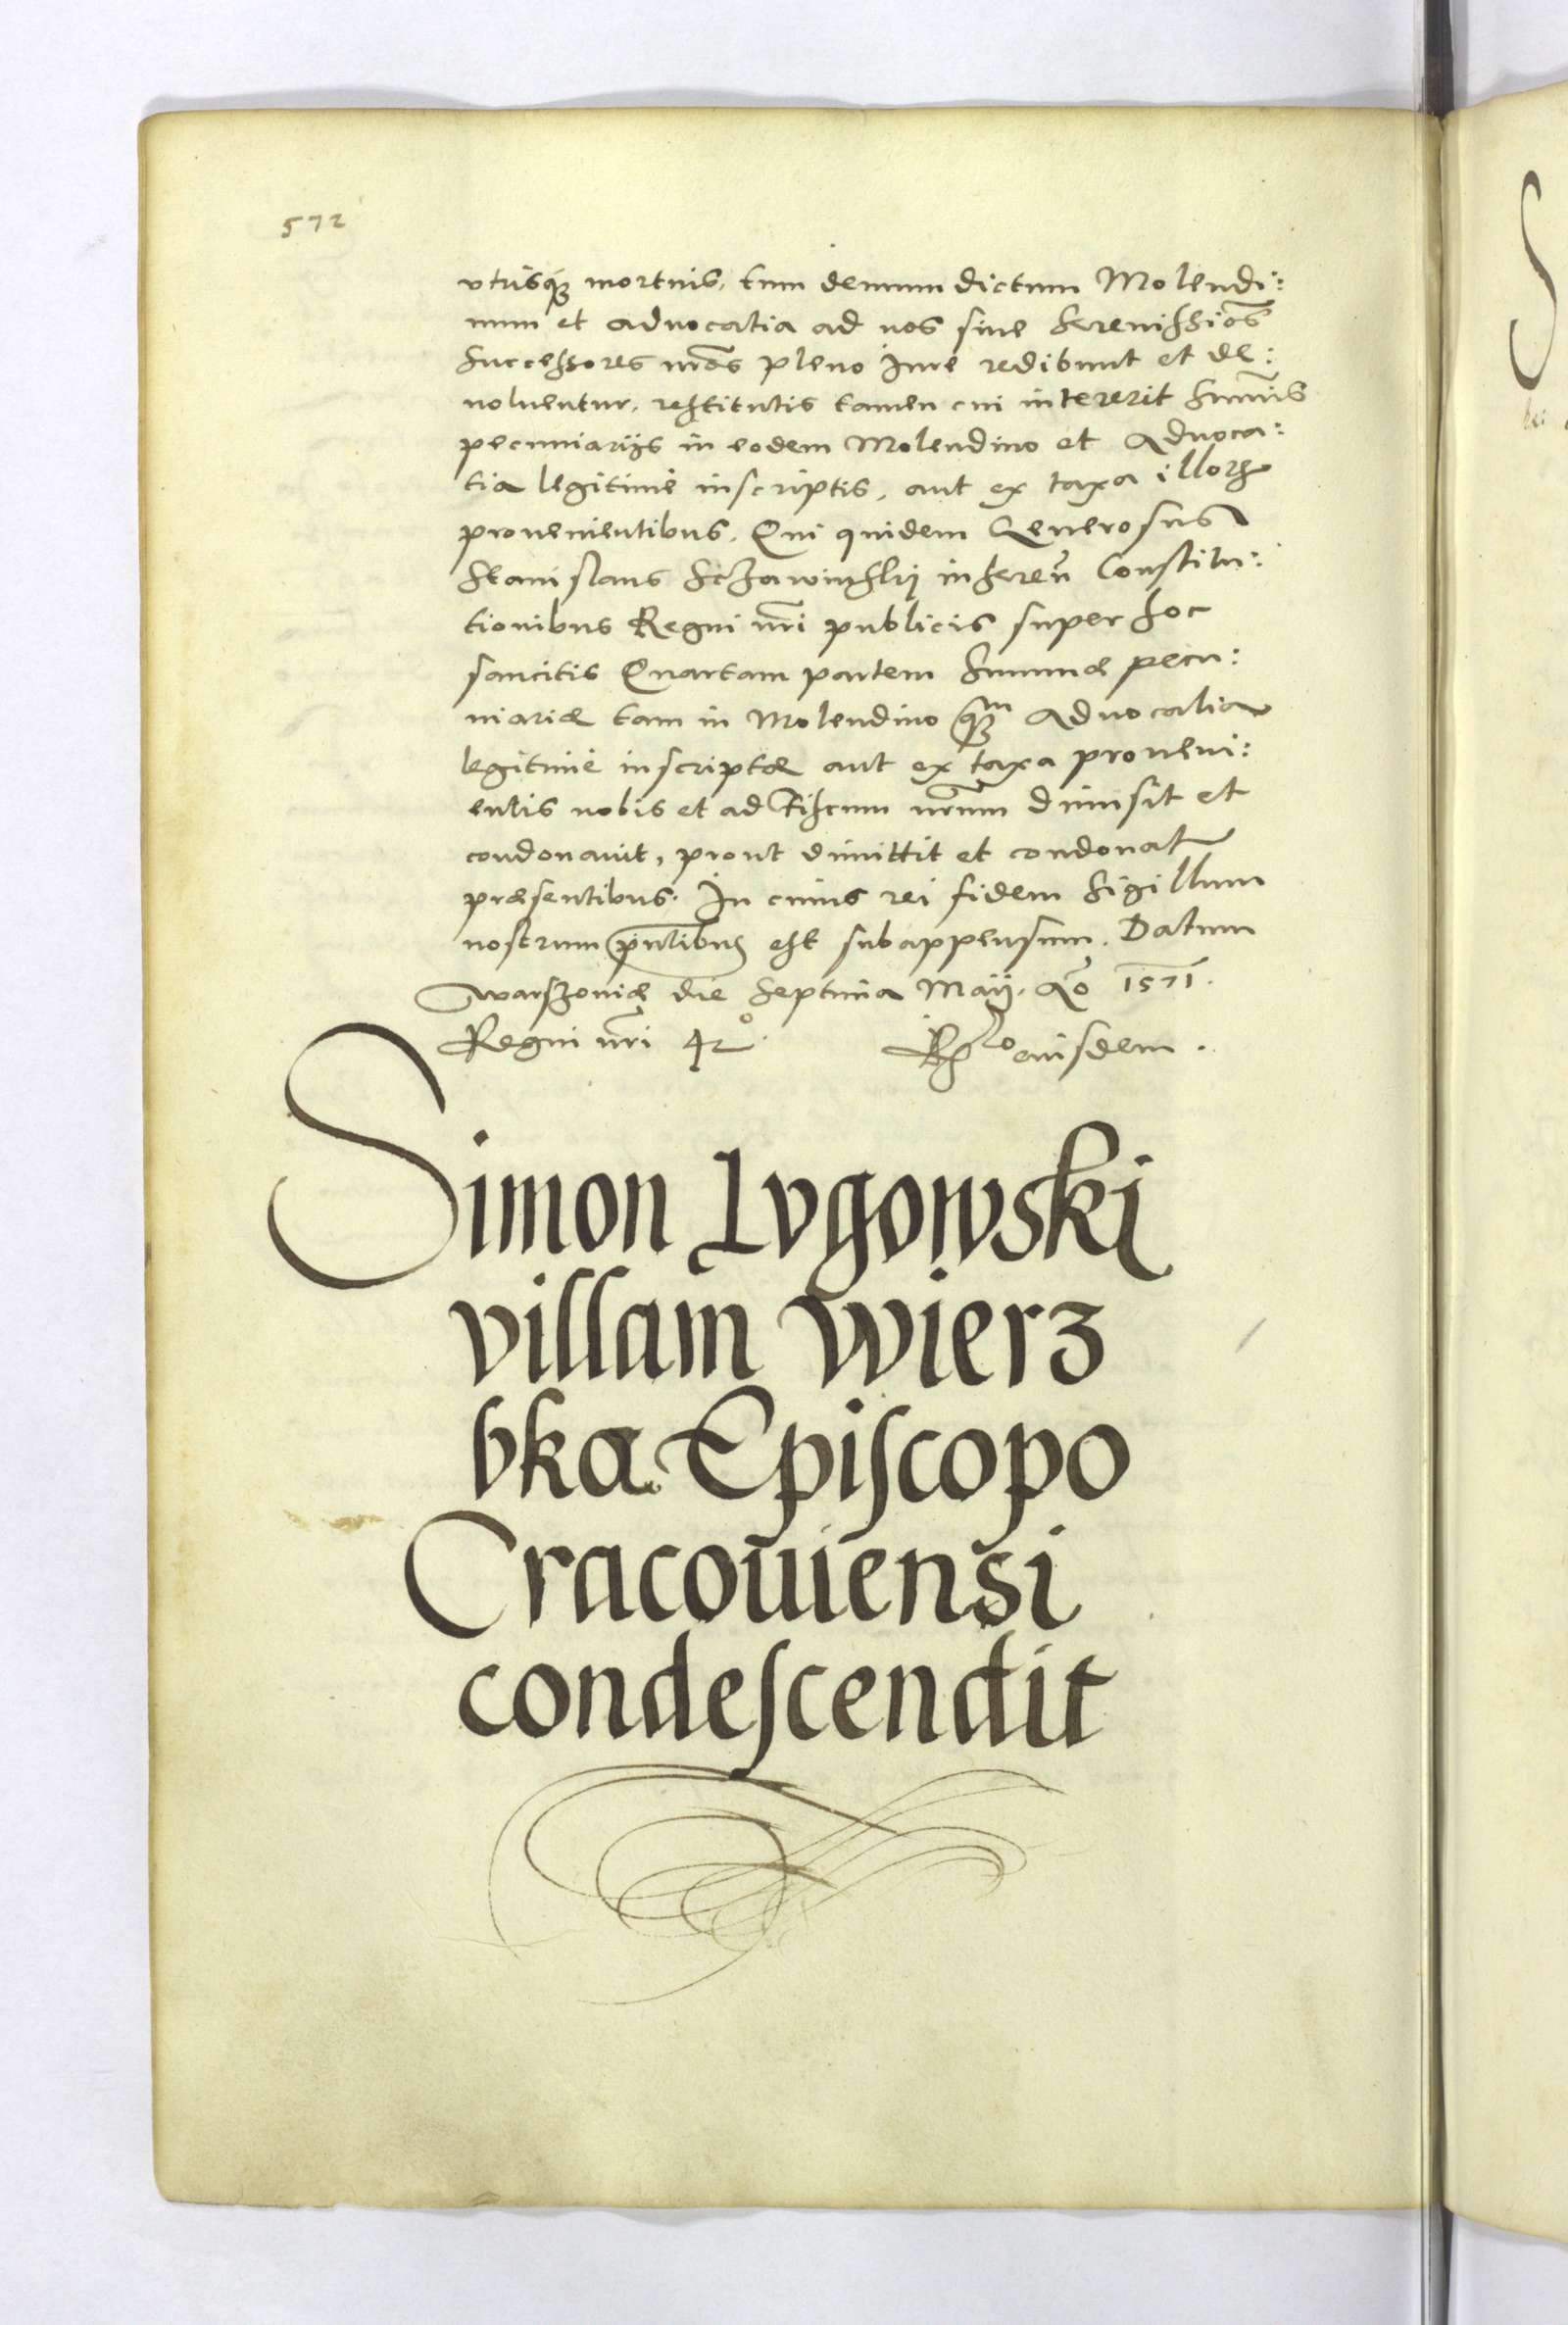 572
vtrisq3 mortuis, tum demum dictum Molendi:
num et aduocatia ad nos siue Serenissios
Successores nros pleno Iure redibunt et de:
uoluentur, restitutis tamen cui intererit Summis
pecuniarijs in eodem Molendino et Aduoca:
tia legitimè inscriptis, aut ex taxa illorꝝ
prouenientibus. Qui quidem Generosus
Stanislaus inheren Constitu:
tionibus Regni nri publicis super hoc
sancitis Quartam partem Summæ pecu:
niariæ tam in Molendino qm Aduocatia
legitimè inscriptæ aut ex taxa proueni:
entis nobis et ad Fiscum nrum dimisit et
condonauit, prout dimittit et condonat
præsentibus. In cuius rei fidem Sigillum
nostrum pntibus est subappensum. Datum
Warszouiæ die Septima Maij. Ao 1571.
Regni nri 42o. Rlo eiusdem.
Simon Lvgowski
villam wierz
bka Episcopo
Cracouiensi
condescendit